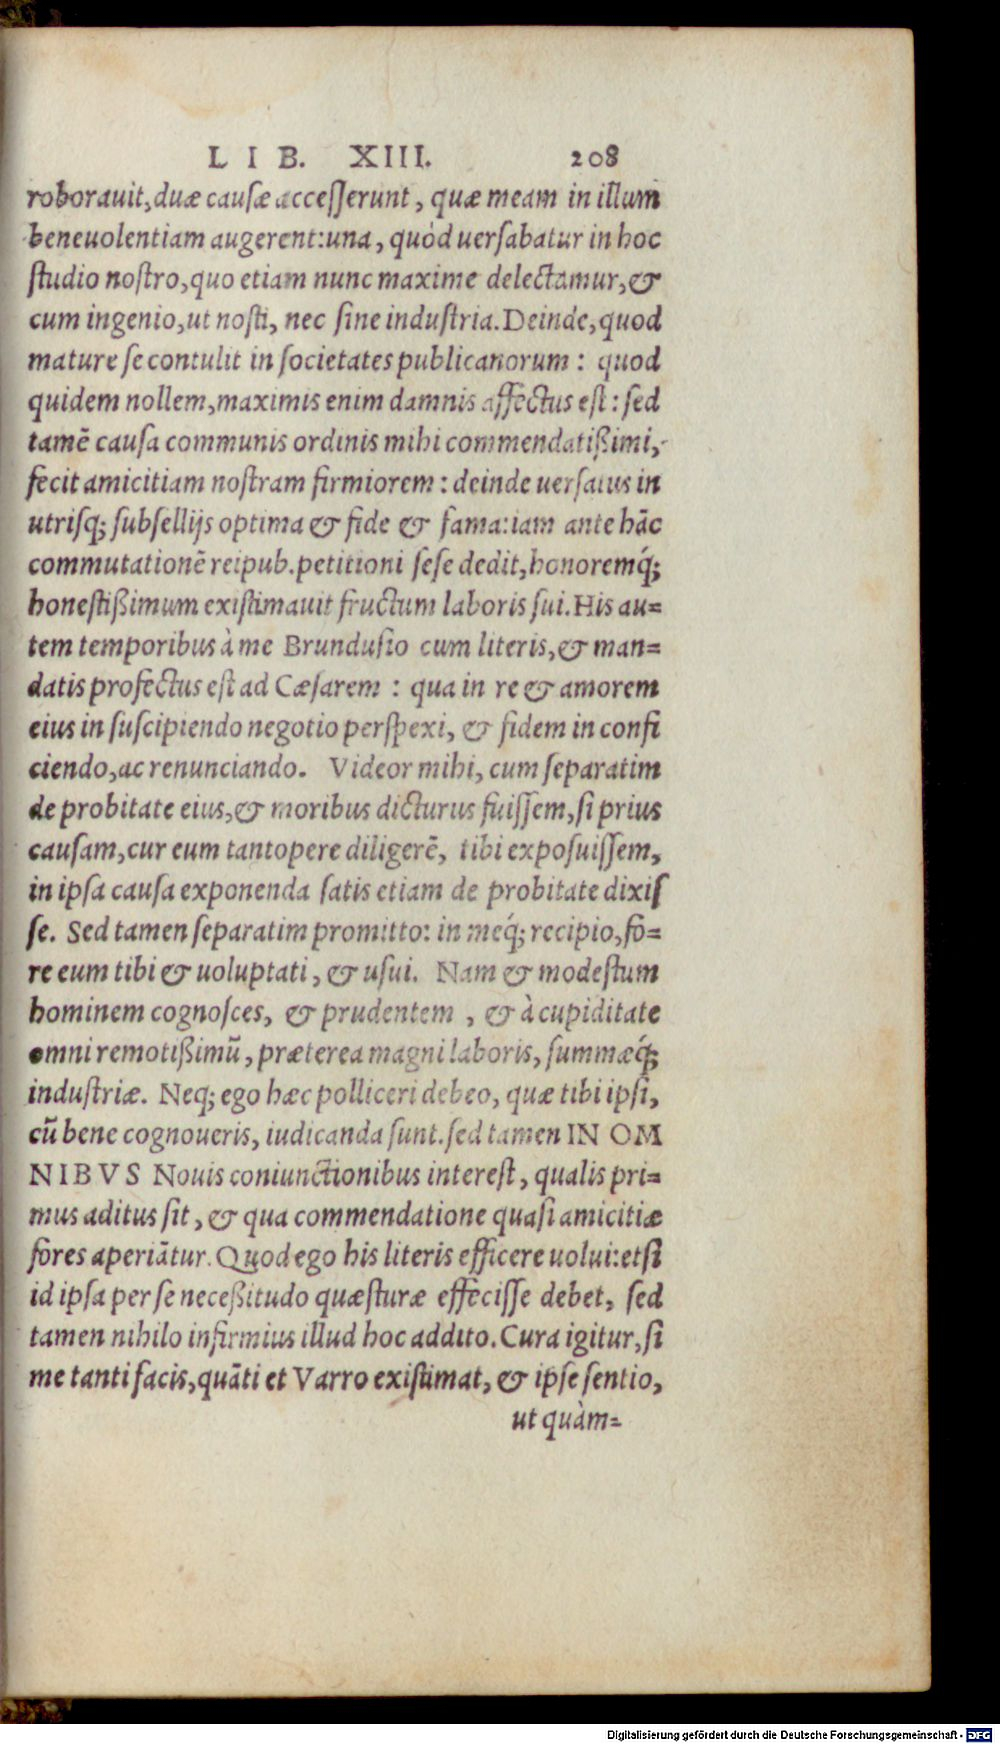 LIB. XIII. 208
roborauit, duæ causæ accesserunt, quæ meam in illum
beneuolentiam augerent: una, quòd uersabatur in hoc
studio nostro, quo etiam nunc maxime delectamur, &
cum ingenio, ut nosti, nec sine industria. Deinde, quod
mature se contulit in societates publicanorum: quod
quidem nollem, maximis enim damnis affectus est: sed
tamē causa communis ordinis mihi commendatißimi,
fecit amicitiam nostram firmiorem: deinde uersatus in
utrisq; subsellijs optima & fide & fama: iam ante hāc
commutationē reipub. petitioni sese dedit, honoremq́;
honestißimum existimauit fructum laboris sui. His au=
tem temporibus à me Brundusio cum literis, & man=
datis profectus est ad Cæsarem: qua in re & amorem
eius in suscipiendo negotio perspexi, & fidem in confi
ciendo, ac renunciando. Videor mihi, cum separatim
de probitate eius, & moribus dicturus fuissem, si prius
causam, cur eum tantopere diligerē, tibi exposuissem,
in ipsa causa exponenda satis etiam de probitate dixis
se. Sed tamen separatim promitto: in meq́; recipio, fo=
re eum tibi & uoluptati, & usui. Nam & modestum
hominem cognosces, & prudentem, & à cupiditate
omni remotißimū, præterea magni laboris, summæq́;
industriæ. Neq; ego hæc polliceri debeo, quæ tibi ipsi,
cū bene cognoueris, iudicanda sunt. sed tamen IN OM
NIBVS Nouis coniunctionibus interest, qualis pri=
mus aditus sit, & qua commendatione quasi amicitiæ
fores aperiātur. Quod ego his literis efficere uolui: etsi
id ipsa per se neceßitudo quæsturæ effecisse debet, sed
tamen nihilo infirmius illud hoc addito. Cura igitur, si
me tanti facis, quāti et Varro existimat, & ipse sentio,
ut quàm=
Digitalisierung gefördert durch die Deutsche Forschungsgemeinschaft - DFG